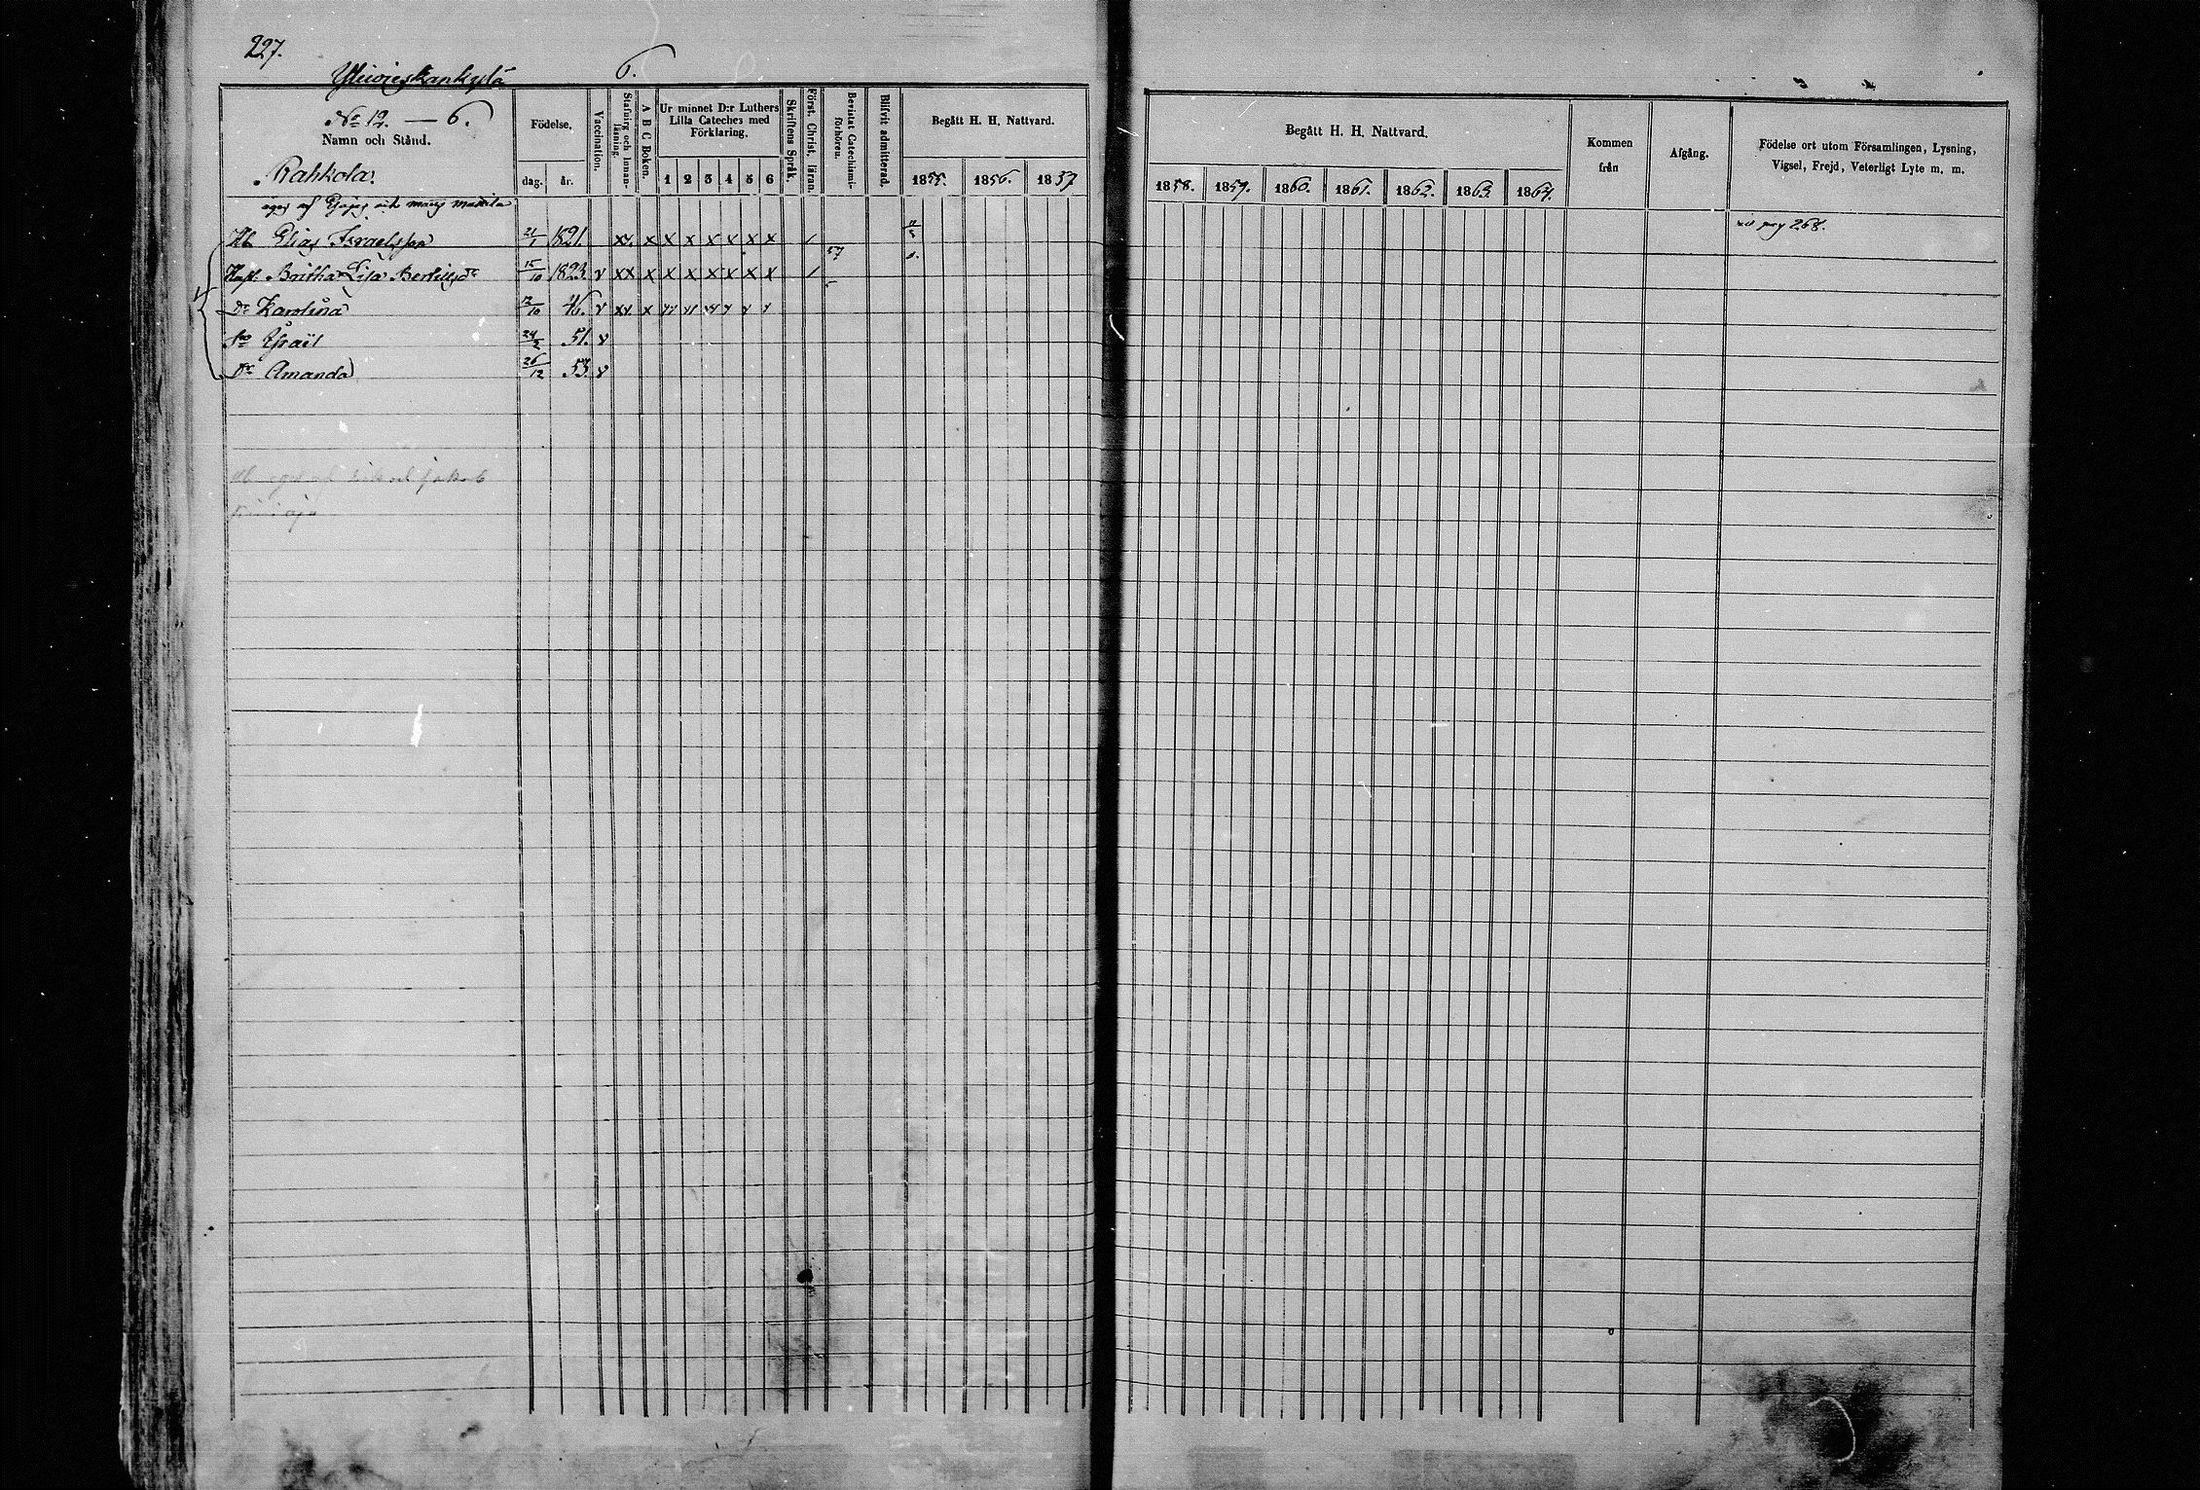 227.
Ylivieskankylä 6.
No 12. — 6.
Namn och Stånd.
Födelse.
dag. år.
Vaccination.
Stafning och Innanläsning.
A B C Boken.
Ur minnet D:r Luthers
Lilla Cateches med
Förklaring.
1 2 3 4 5 6
Skriftens Språk.
Först. Christ. läran.
Bevistat Catechismiförhören.
Blifvit admitterad.
Begått H. H. Nattvard.
1855. 1856. 1857
Begått H. H. Nattvard.
1858. 1859. 1860. 1861. 1862. 1863. 1864.
Kommen
från
Afgång.
Födelse ort utom Församlingen, Lysning,
Vigsel, Frejd, Veterligt Lyte m. m.
Rahkola.
af och
Elias Israelsson 21/1 1821. xx x x x x x x x / 268.
Hust. Britha Lisa 15/10 1823. v xx x x x x x x x / 57
Dr Karolina 12/10 46. v xx x
Israil 24/2 51. v
Dr Amanda 26/12 53. v